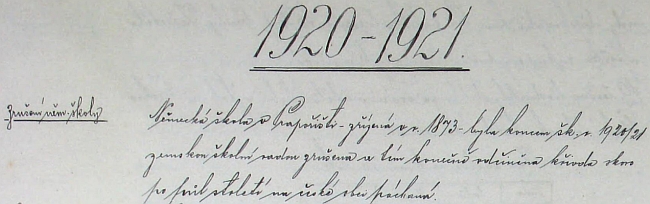 1920-1921.
Zrušení něm. školy
Německá škola v Prapořišti - zřízená v r. 1873 - byla koncem šk. r. 1920/21
zemskou školní radou zrušena a tím konečně odčiněna křivda skoro
po půl století na české obci páchaná.